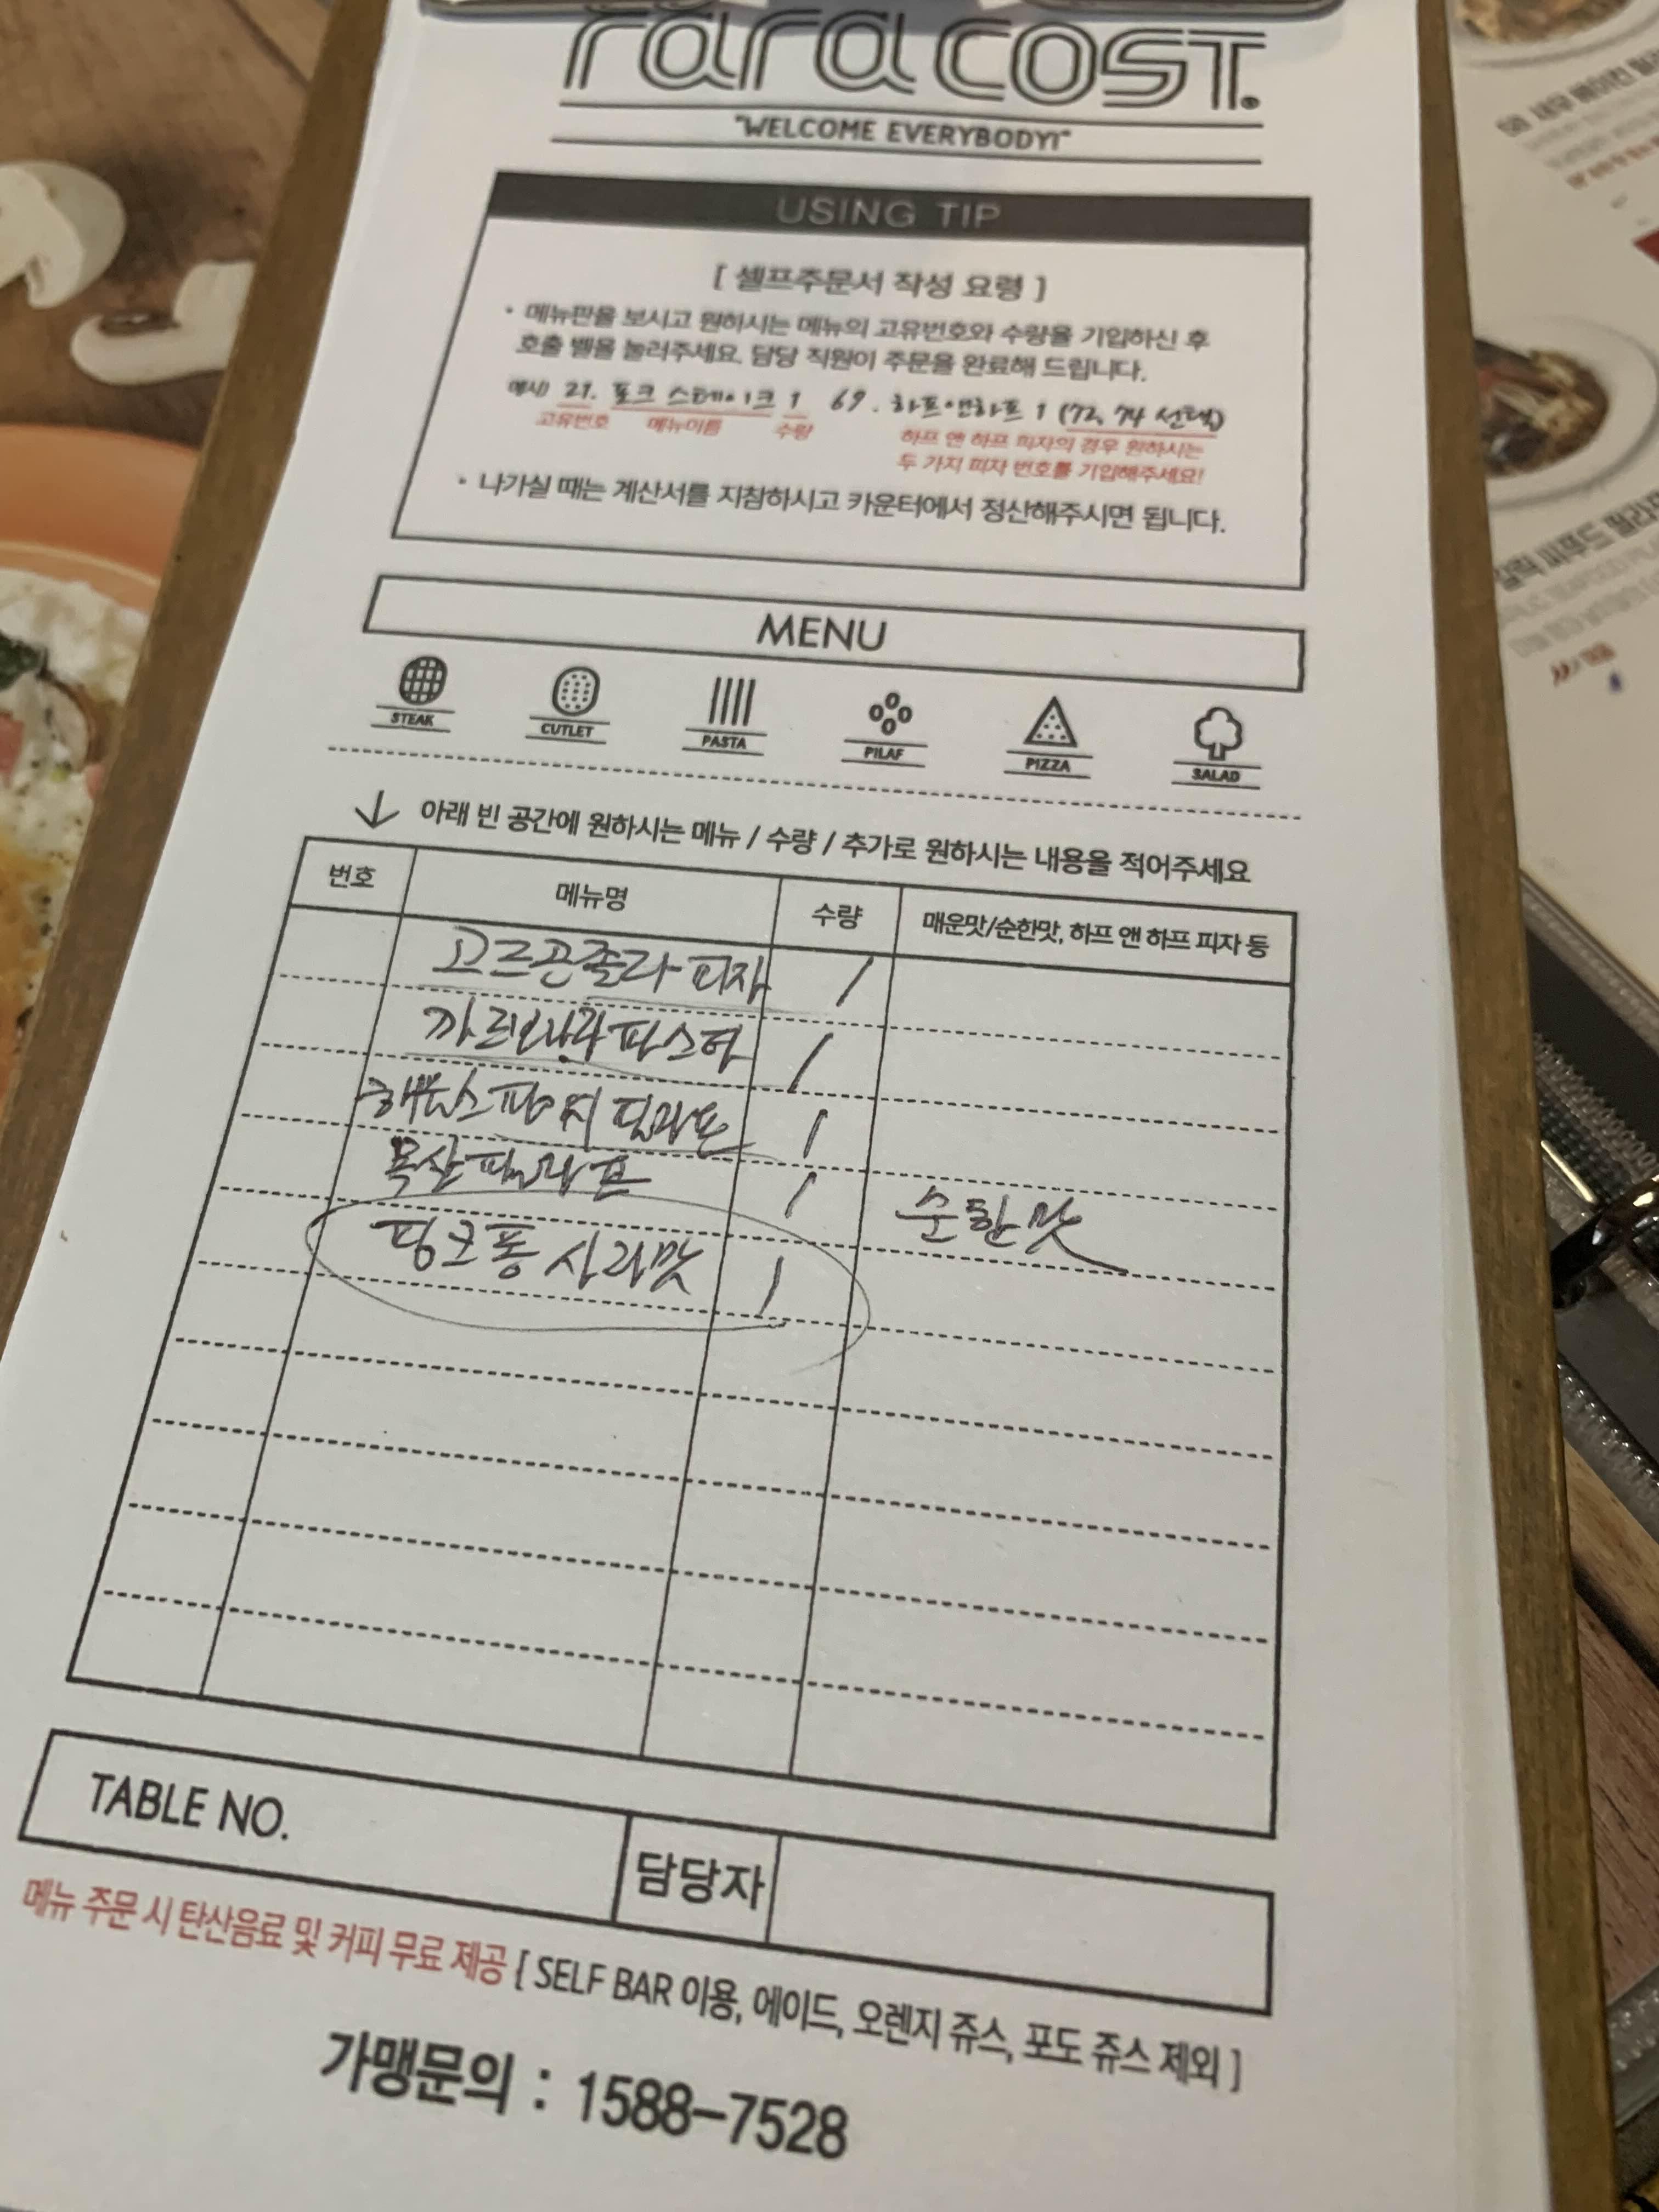 raracOST.
"WELCOME EVERYBODY!"
USING TIP
[ 셀프주문서 작성 요령 ]
• 메뉴판을 보시고 원하시는 메뉴의 고유번호와 수량을 기입하신 후
호출 벨을 눌러주세요. 담당 직원이 주문을 완료해 드립니다.
예시) 21. 포크 스테이크 1 69. 하프앤하프 1 (72, 74 선택)
고유번호 메뉴이름 수량 하프 앤 하프 피자의 경우 원하시는
두 가지 피자 번호를 기입해주세요!
• 나가실 때는 계산서를 지참하시고 카운터에서 정산해주시면 됩니다.
MENU
STEAK CUTLET PASTA PILAF PIZZA SALAD
↓ 아래 빈 공간에 원하시는 메뉴 / 수량 / 추가로 원하시는 내용을 적어주세요
번호 메뉴명 수량 매운맛/순한맛, 하프 앤 하프 피자 등
고르곤졸라 피자 1
까르보나라 파스타 1
필라프 1
목살 필라프 1 순한맛
핑크퐁 사과맛 1
TABLE NO. 담당자
메뉴 주문 시 탄산음료 및 커피 무료 제공 [ SELF BAR 이용, 에이드, 오렌지 쥬스, 포도 쥬스 제외 ]
가맹문의 : 1588-7528